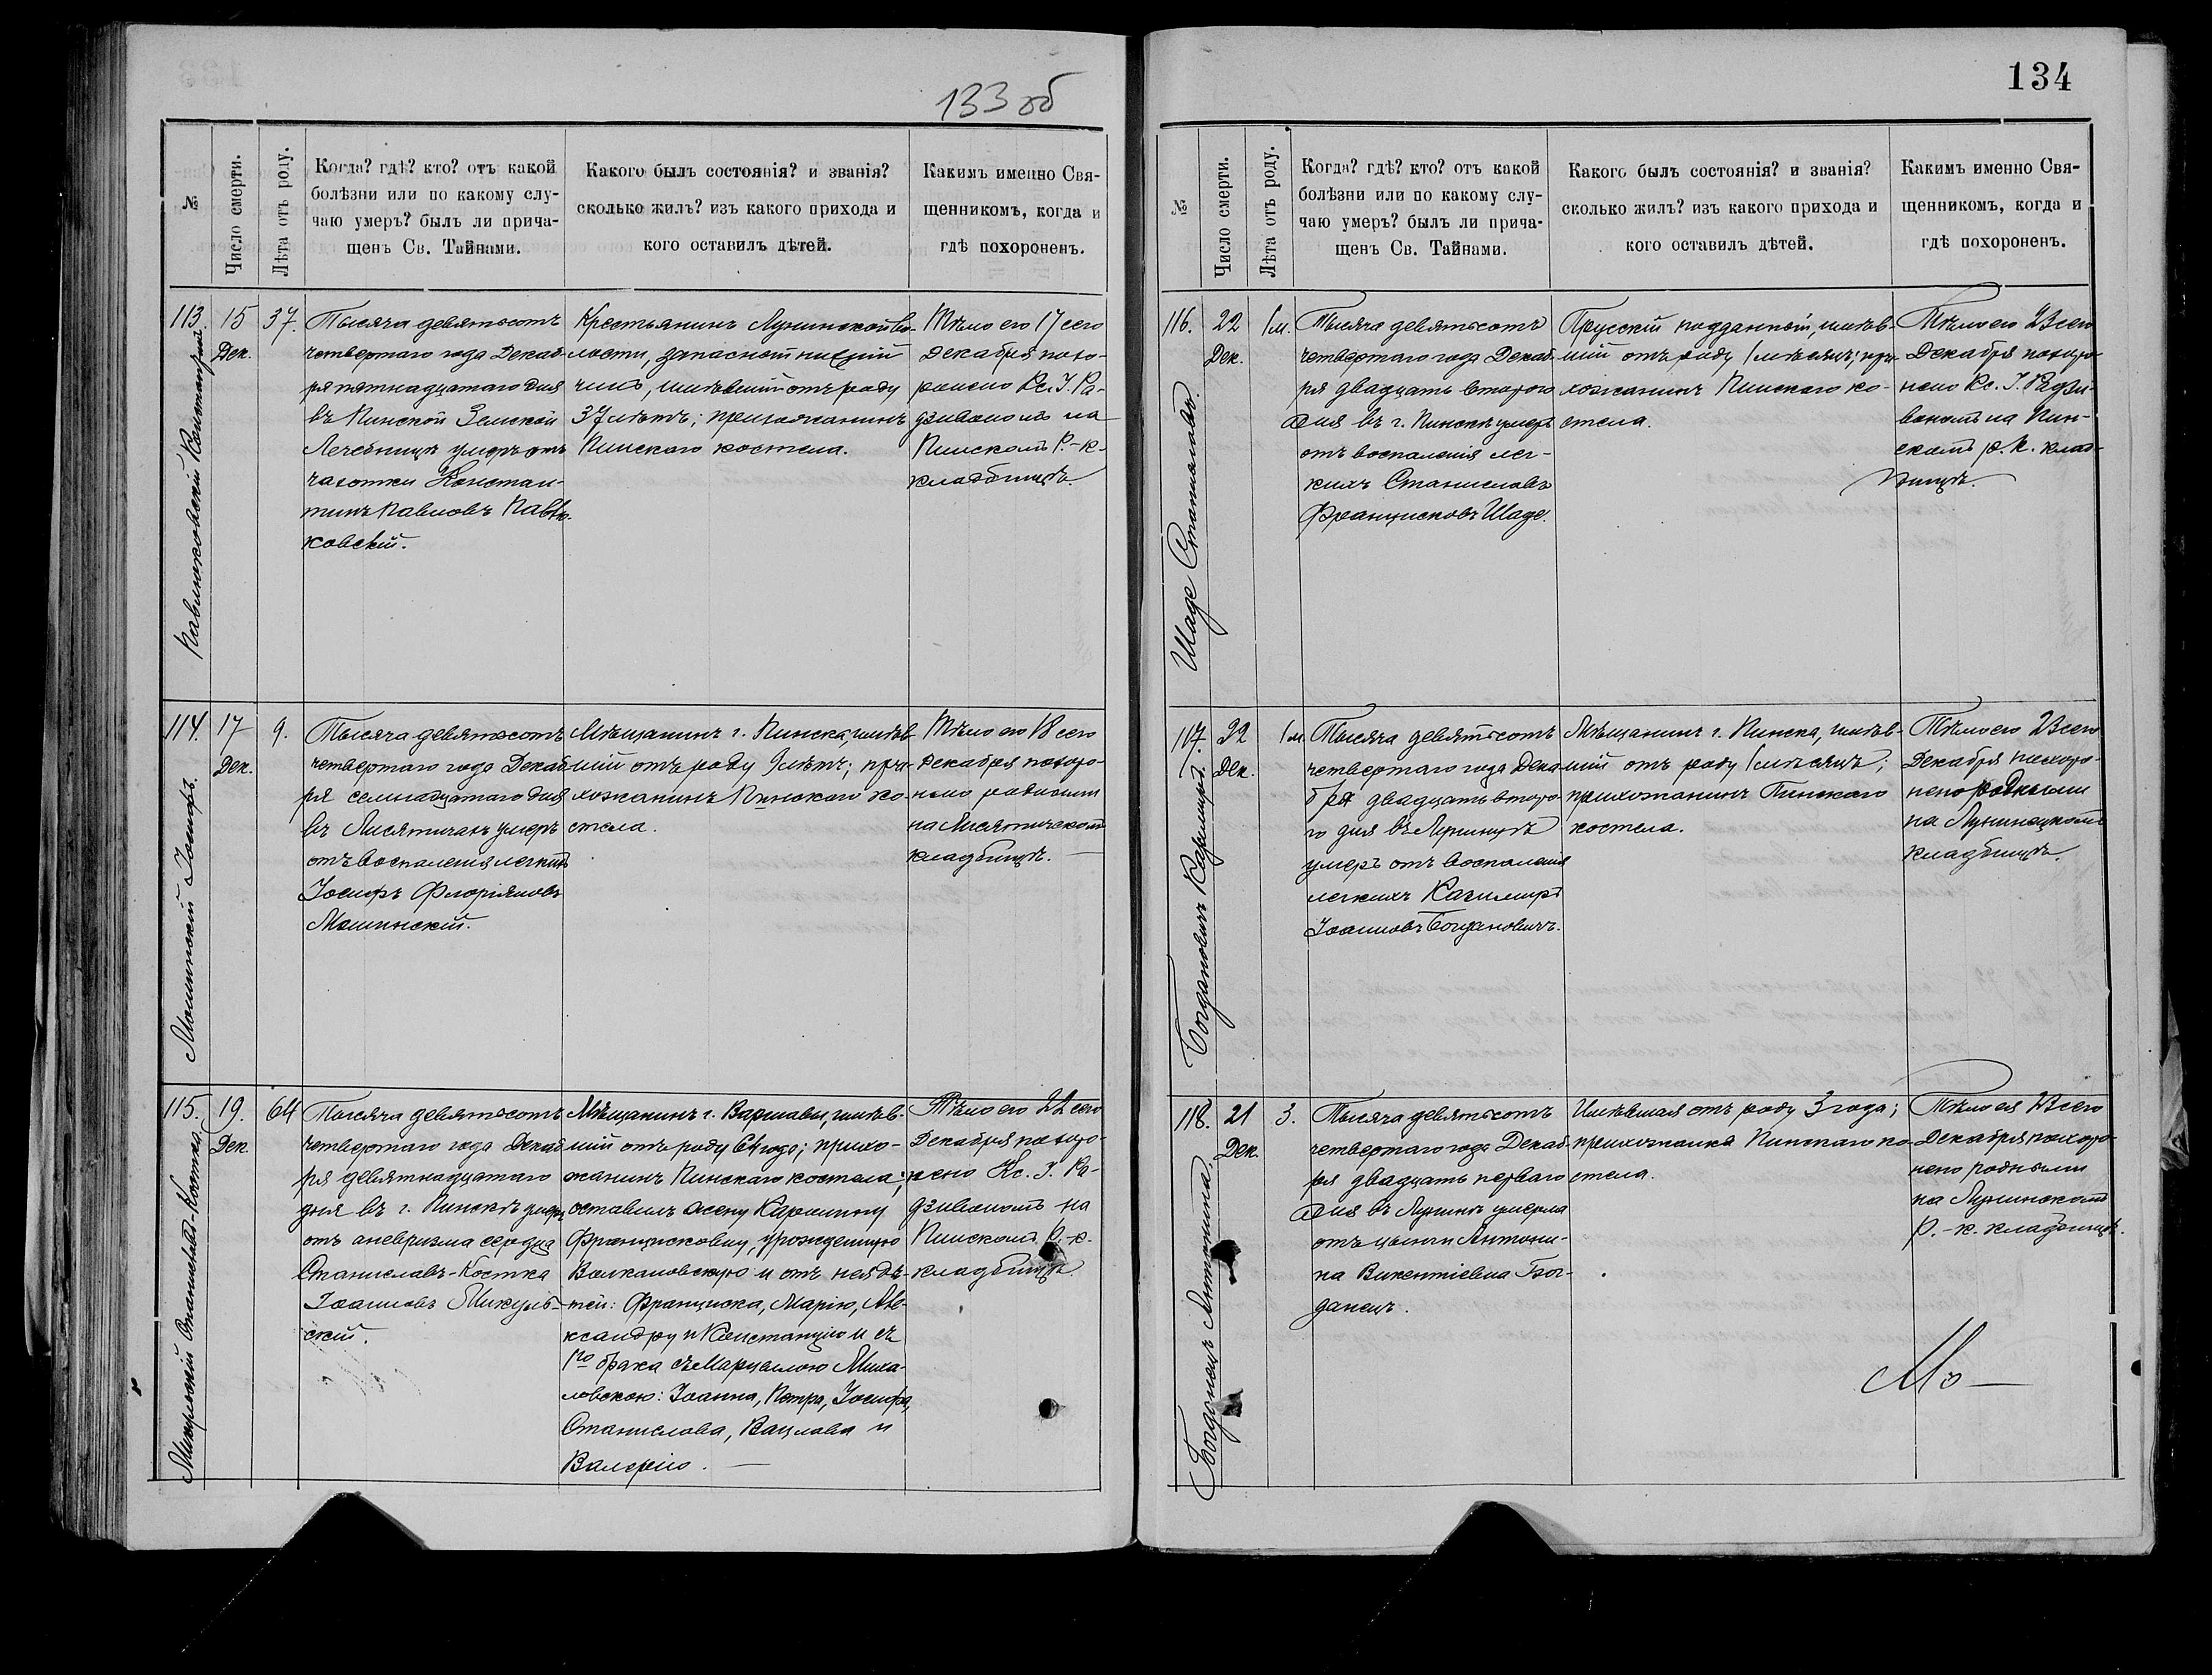 133 об
№
Число смерти.
Лѣта отъ роду.
Когда? гдѣ? кто? отъ какой
болѣзни или по какому слу-
чаю умеръ? былъ ли прича-
щенъ Св. Тайнами.
Какого былъ состоянія? и званія?
сколько жилъ? изъ какого прихода и
кого оставилъ дѣтей.
Какимъ именно Свя-
щенникомъ, когда и
гдѣ похороненъ.
113.
15
Дек.
37.
Тысяча девятьсотъ
четвертаго года Декаб-
ря пятнадцатаго дня
въ Пинской Земской
Лечебницѣ умеръ отъ
чахотки Констан-
тинъ Павловъ Павлю-
ковскій.
Крестьянинъ Лунинской Во-
лости, запасной нижній
чинъ, имѣвшій отъ роду
37 лѣтъ; прихожанинъ
Пинскаго костела.
Тѣло его 17 сего
Декабря похо-
ронено Кс. І. Ра-
дзивономъ на
Пинскомъ Р.-к.
кладбищѣ.
Павлюковскій Константинъ
114.
17
Дек.
9.
Тысяча девятьсотъ
четвертаго года Декаб-
ря семнадцатаго дня
въ Лисятичахъ умеръ
отъ воспаленія легкихъ
Іосифъ Флоріановъ
Мошинскій.
Мѣщанинъ г. Пинска, имѣв-
шій отъ роду 9 лѣтъ; при-
хожанинъ Пинскаго ко-
стела.
Тѣло его 18 сего
Декабря похоро-
нено родными
на Лисятичскомъ
кладбищѣ.
Мошинскій Іосифъ.
115.
19.
Дек.
64
Тысяча девятьсотъ
четвертаго года Декаб-
ря девятнадцатаго
дня въ г. Пинскѣ умеръ
отъ аневризма сердца
Станиславъ-Костка
Іоанновъ Микуль-
скій.
Мѣщанинъ г. Варшавы, имѣв-
шій отъ роду 64 года; прихо-
жанинъ Пинскаго костела;
оставилъ жену Каролину
Францисковну, урожденную
Волкановскую и отъ нея дѣ-
тей: Франциска, Марію, Але-
ксандру и Констанцію и съ
1го брака съ Марцелею Миха-
ловскою: Іоанна, Петра, Іосифа,
Станислава, Вацлава и
Валерію.
Тѣло его 22 сего
Декабря похоро-
нено Кс. І. Ра-
дзивономъ на
Пинскомъ Р.-к.
кладбищѣ.
Микульскій Станиславъ-Костка.
134
№
Число смерти.
Лѣта отъ роду.
Когда? гдѣ? кто? отъ какой
болѣзни или по какому слу-
чаю умеръ? былъ ли прича-
щенъ Св. Тайнами.
Какого былъ состоянія? и званія?
сколько жилъ? изъ какого прихода и
кого оставилъ дѣтей.
Какимъ именно Свя-
щенникомъ, когда и
гдѣ похороненъ.
116.
22
Дек.
1м.
Тысяча девятьсотъ
четвертаго года Декаб-
ря двадцать второго
дня въ г. Пинскѣ умеръ
отъ воспаленія лег-
кихъ Станиславъ
Францисковъ Шаде.
Прусскій подданный, имѣв-
шій отъ роду 1 мѣсяцъ; при-
хожанинъ Пинскаго ко-
стела.
Тѣло его 23 сего
Декабря похоро-
нено Кс. І. Радзи-
вономъ на Пин-
скомъ р.к. клад-
бищѣ.
Шаде Станиславъ.
117.
22
Дек.
1м
Тысяча девятьсотъ
четвертаго года Дека-
бря двадцать второ-
го дня въ Лунинцѣ
умеръ отъ воспаленія
легкихъ Казимиръ
Іоанновъ Богдановичъ.
Мѣщанинъ г. Пинска, имѣв-
шій отъ роду 1 мѣсяцъ;
прихожанинъ Пинскаго
костела.
Тѣло его 23 сего
Декабря похоро-
нено родными
на Лунинецкомъ
кладбищѣ.
Богдановичъ Казимиръ.
118.
21
Дек.
3.
Тысяча девятьсотъ
четвертаго года Декаб-
ря двадцать перваго
дня въ Лунинѣ умерла
отъ цынги Антони-
на Викентіевна Бог-
данецъ.
Имѣвшая отъ роду 3 года;
прихожанка Пинскаго ко-
стела.
Тѣло ея 23 сего
Декабря похоро-
нено родными
на Лунинскомъ
Р.-к. кладбищѣ.
Богданецъ Антонина.